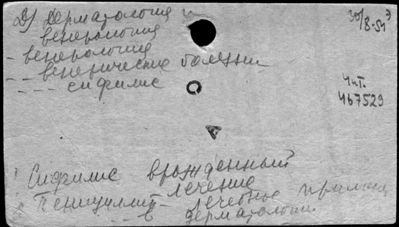 Д) Дерматология и
венерология
- венерология
- - венерические болезни
- - - сифилис
30/8-51 э
Ч.п.
467529
" Сифилис врожденный
- лечение
" Пенициллин - лечебное примен
- - в дерматологии